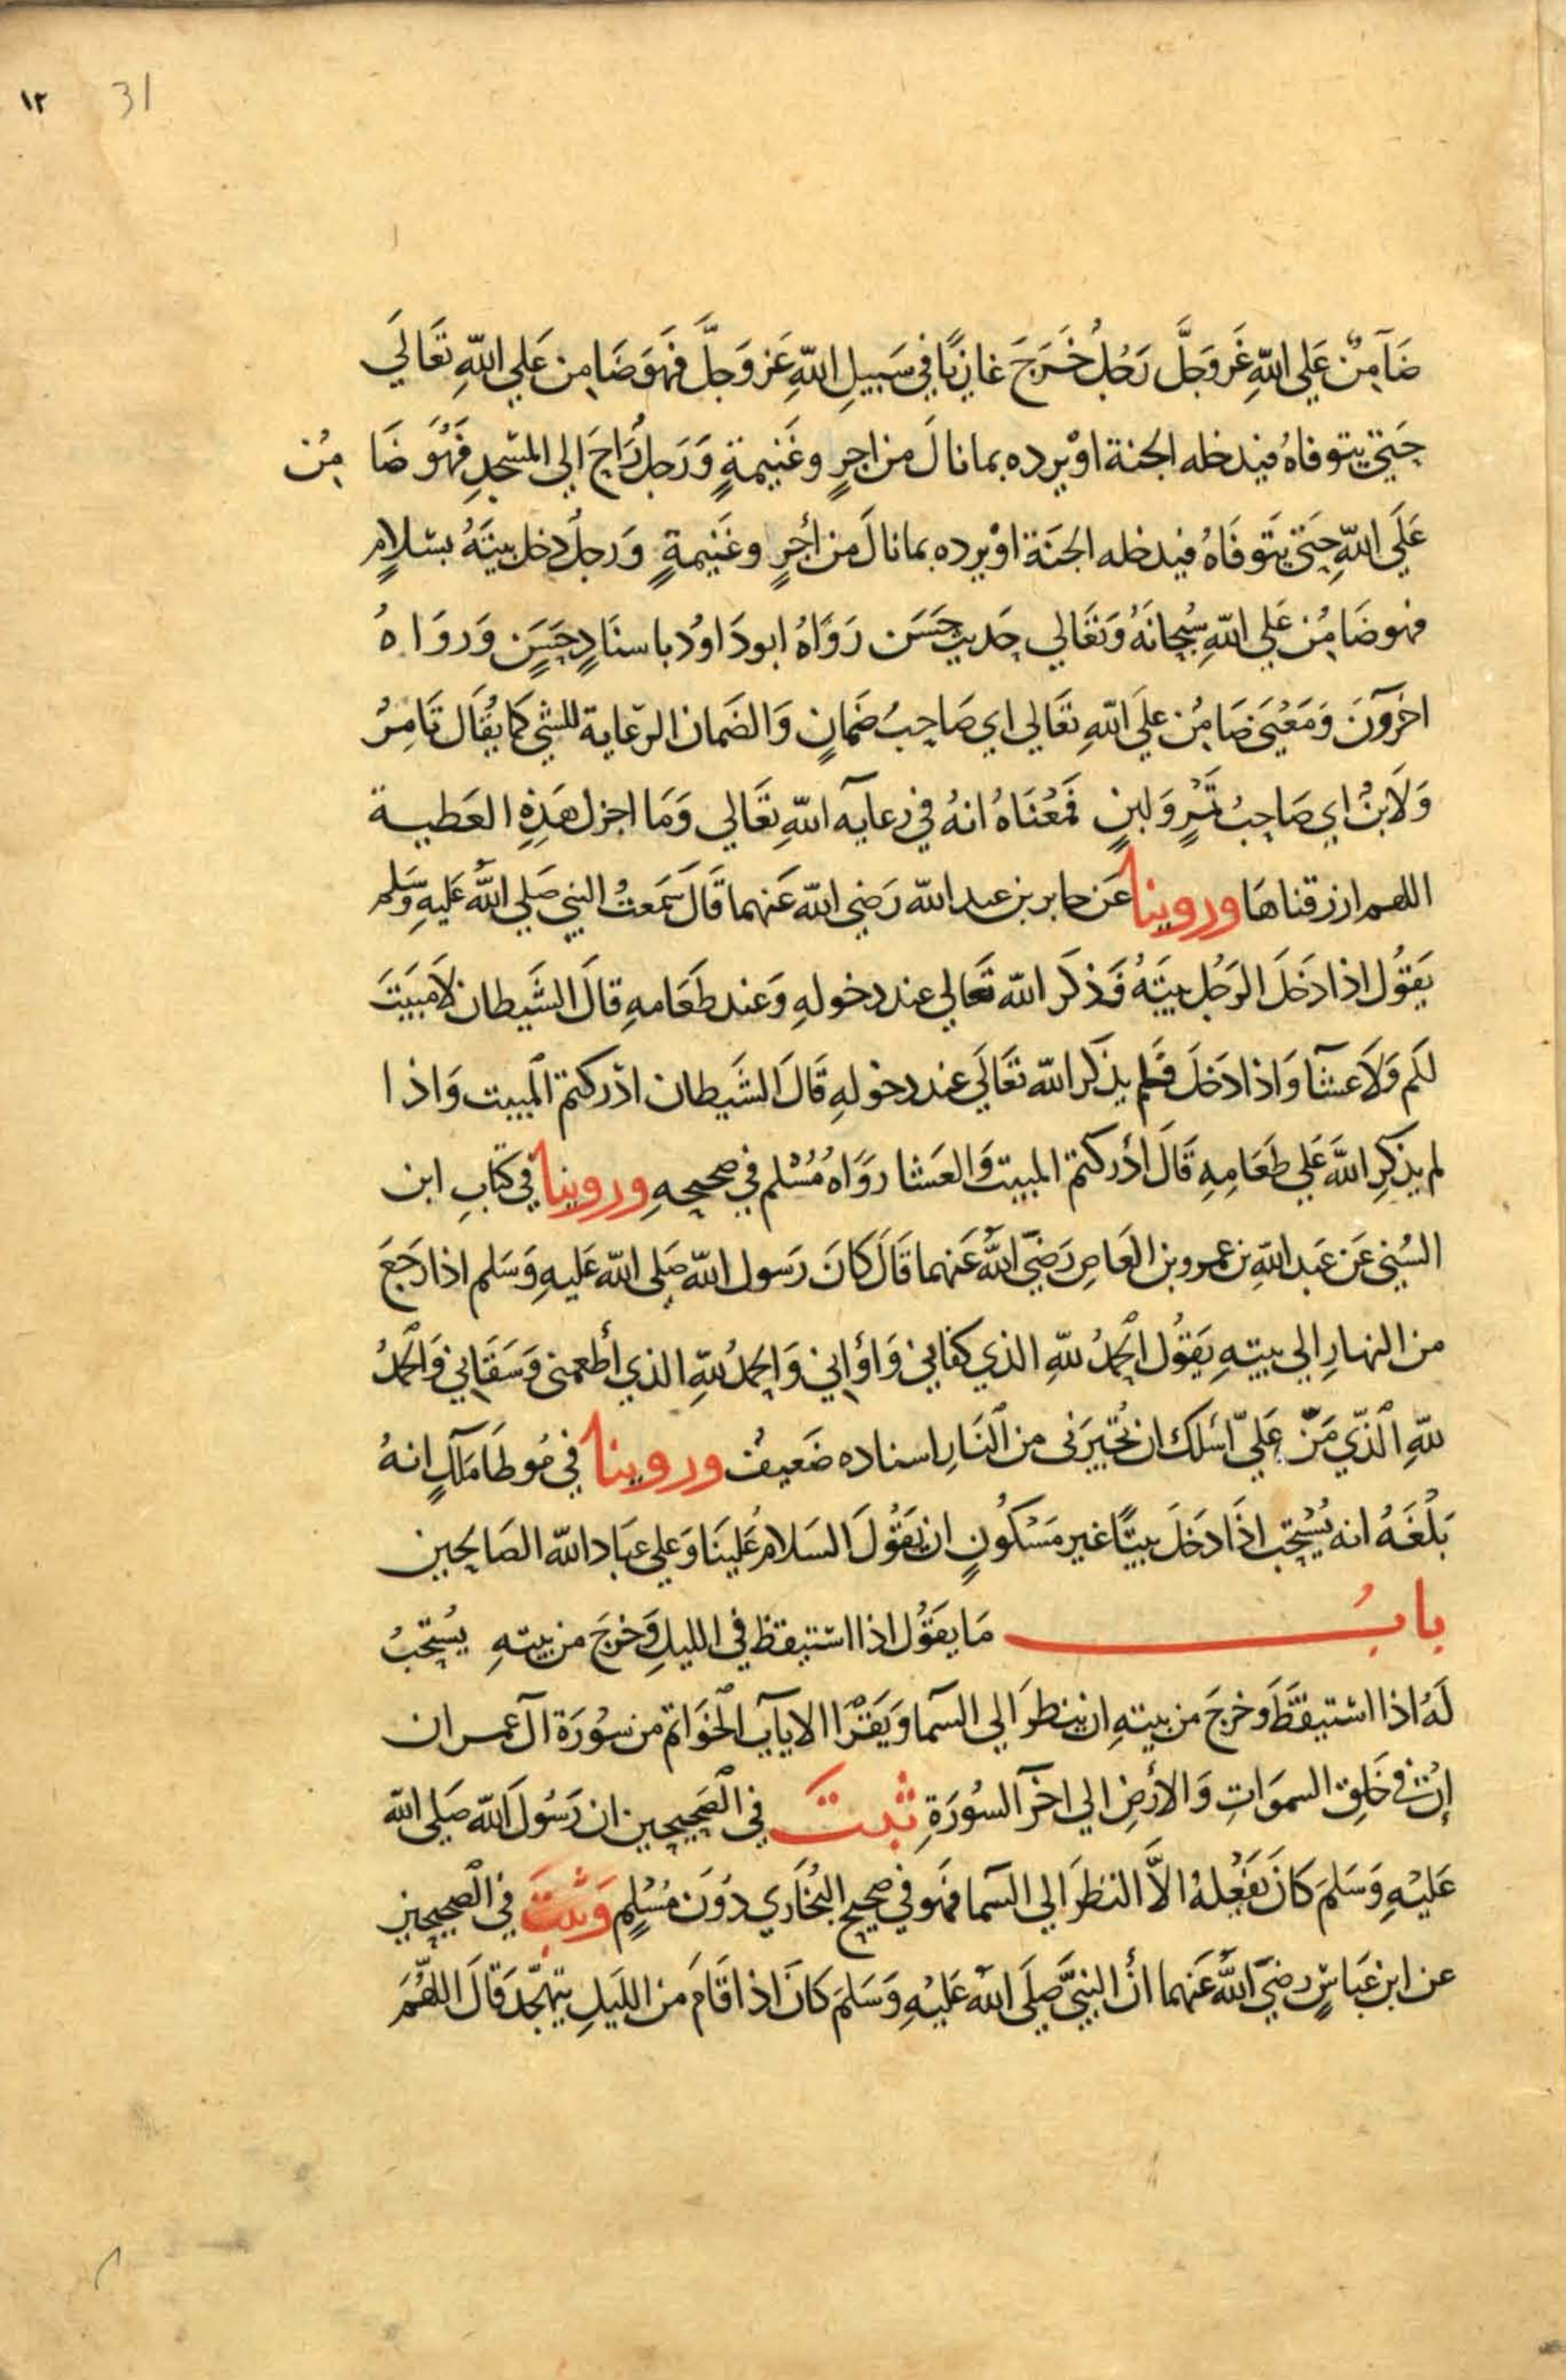 ١٢ 31
ضَآمِنٌ عَلي اللهِ عَزوَجَلَّ رَجُلٌ خَرَجَ غازيًا في سَبيلِ اللهِ عَز وَجلَّ فَهوَ ضَامِن عَلي اللهِ تعَالَي
حَتي يتوفاهُ فيدخله الجنة اوْ يرده بما نالَ من اجرٍ وغَنيمةٍ وَرَجلٌ رَاحَ الي المسْجدِ فَهُوَ ضَا مِنٌ
عَلَي اللهِ حَتي يتَوفَاهُ فيدخله الجنَة اوْ يرده بما نالَ من أجرٍ وغَنيمةٍ وَرجلٌ دخل بيتَهُ بسَلامٍ
فهو ضَامِنٌ عَلي اللهِ سُبحانَهُ وَتعَالي حَديث حَسَن رَوَاهُ ابو دَاودُ باسنَادٍ حَسَنٍ وَروَاهُ
اخرَوُنَ وَمَعْنَي ضَامِنٌ علي اللهِ تعَالي اي صَاحِبُ ضَمانٍ وَالضَمان الرّعاية للشي كَما يقُال تَامِرٌ
وَلَابنٌ اي صَاحِبُ تَمْرٍ وَلبنٍ فَمعْنَاهُ انهُ في رعايَه اللهِ تعَالي وَمَا اجزل هَذِهِ العَطيـة
اللهم ارزقناهَا وروينا عَن جابر بن عبد الله رَضي الله عَنهما قَالَ سَمعتُ النبي صَلي اللَّه عَليهِ وَسَلم
يَقوُل اذا دَخَلَ الرَجُل بيتَهُ فَذكَر الله تَعَالي عند دخولهِ وَعند طَعَامهِ قالَ الشَّيطان لَا مَبيَتَ
لكَم وَلَا عشَآ وَاذا دَخَلَ فَلم يذكَر الله تعَالَي عند دخولهِ قَالَ الشَيطان ادْركتم المبيت وَاذا
لم يذكرِ اللَّهَ عَلي طَعَامِهِ قَالَ أدْركتم المبيت وَالعَشا روَاهُ مُسْلم في صَحيحهِ وروينا في كتَابِ ابن
السُني عَن عَبد اللهِ بن عمرو بن العَاصِ رَضَيَ اللَّه عَنهما قَالَ كَانَ رَسول اللهِ صَلي الله عَليهِ وَسَلم اذا رَجَعَ
من النهارِ الي بيتهِ يَقوُل الحمدُ للهِ الذي كفَاني وَاؤاني وَالحمدُ للهِ الذي أطعمني وَسَقَاني وَالحَمدُ
للهِ الَّذي مَنَّ عَليَّ اسْلك ان تجيرَني من النَارِ اسناده ضَعيفٌ وروينا في مُوطَا مَآلكٍ انهُ
بَلْغَهُ انه يُسْتحب اذَا دَخَلَ بيتًا غير مَسْكُونٍ ان يَقوُلَ السَلامُ عَلينَا وَعلي عبَاد الله الصَالحِين
بابُ مَا يقوُل اذا استيقظ في الليلِ وَخرجَ من بيتهِ يسُتحبُ
لَهُ اذا استيقَظَ وخرجَ من بيتهِ ان ينظرَ الي السَما وَيَقرْا الايات الخوَاتم من سوُرَة آل عمران
إنَّ في خَلقِ السموَاتِ وَالأرَضِ الي اخرَ السوُرَةِ ثبتَ في الصَحيحين ان رَسوُلَ اللهِ صَلي الله
عَليْهِ وَسَلمَ كَانَ يَفعْلهُ الاَّ النظرَ الي السَما فهَو في صحيح البُخاَري دوُنَ مُسْلمٍ وَثبتَ في الصحيحين
عن ابن عَباسٍ رضيَ اللَّهُ عَنهما أنَّ النبيَّ صَلَي اللهُ عَليْهِ وَسَلمَ كَانَ اذا قَامَ من اللَيلِ يتهجّد قَالَ اللَّهُمَ